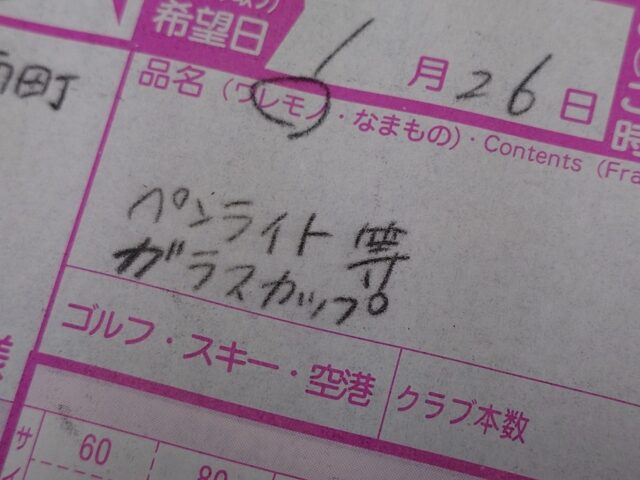 希望日
1月26日
町
品名(ワレモノ・なまもの)・Contents (Fra
ペンライト等
ガラスカップ
ゴルフ・スキー・空港
クラブ本数
サ
60
80